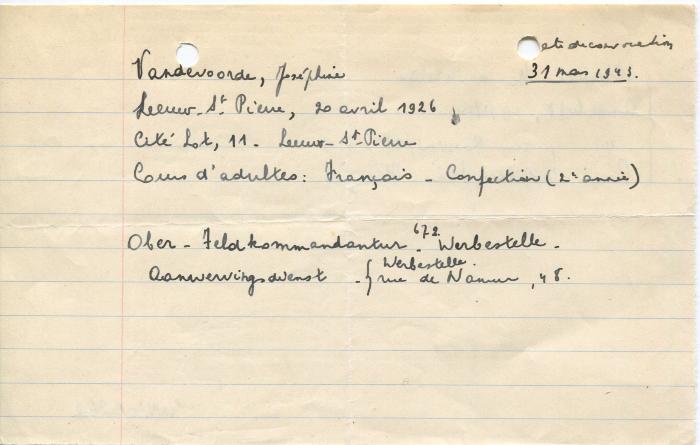 date de convocation
31 mars 1943.
Vandevoorde, Joséphine
Leeuw-St Pierre, 20 avril 1926
Cité Lot, 11 - Leeuw-St-Pierre
Cours d'adultes: Français - Confection (2e année)
Ober-Feldkommandantur 672. Werbestelle.
Aanwervingsdienst - { Werbestelle.
rue de Namur, 48.